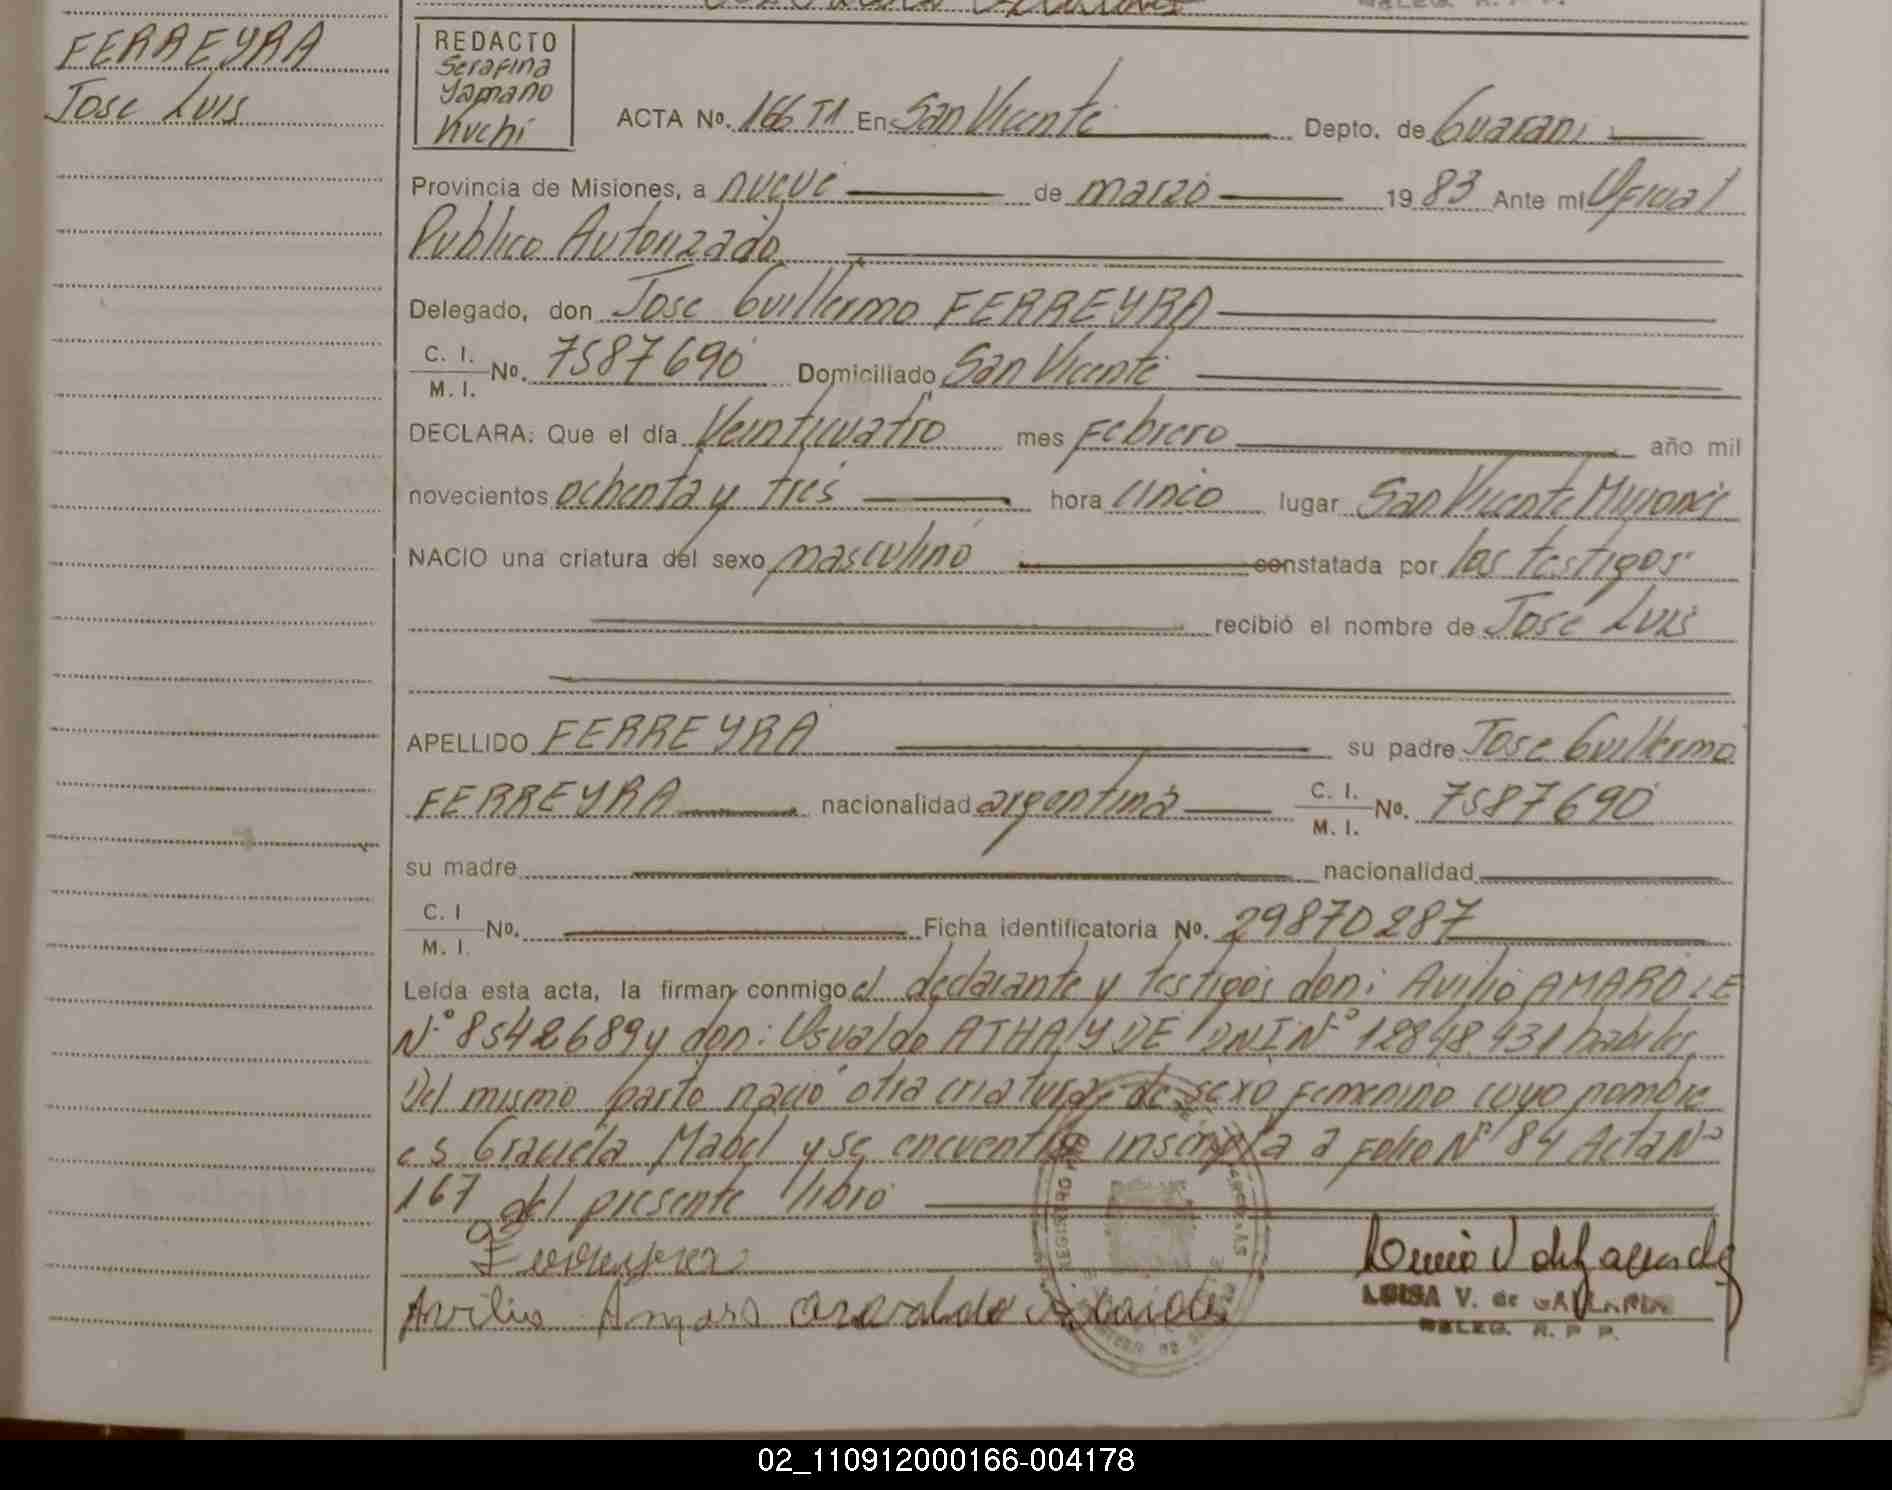 FERREYRA
Jose Luis
REDACTO
Serafina
Yamano
Kuchi
ACTA Nº. 166 T1 En San Vicente Depto. de Guarani
Provincia de Misiones, a nueve de marzo 1983 Ante mi Oficial
Publico Autorizado
Delegado, don Jose Guillermo FERREYRA
C. I.
M. I. Nº. 7587690 Domiciliado San Vicente
DECLARA: Que el día Veinticuatro mes Febrero año mil
novecientos ochenta y tres hora cinco lugar San Vicente Misiones
NACIO una criatura del sexo masculino constatada por los testigos
recibió el nombre de Jose Luis
APELLIDO FERREYRA su padre Jose Guillermo
FERREYRA nacionalidad argentina C. I.
M. I. Nº. 7587690
su madre nacionalidad
C. I
M. I. Nº. Ficha identificatoria Nº. 29870287
Leída esta acta, la firman conmigo el declarante y testigos don: Avilio AMARO LE
Nº 8542689 y don: Osvaldo ATHAYDE DNI Nº 12848431 habiles
Del mismo parto nació otra criatura, de sexo femenino cuyo nombre
es Graciela Mabel y se encuentra inscripta a Folio Nº 84 Acta Nº
167 del presente libro
Ferreyra
Avilio Amaro
LUISA V. de
DELEG. R. P. P.
02_110912000166-004178